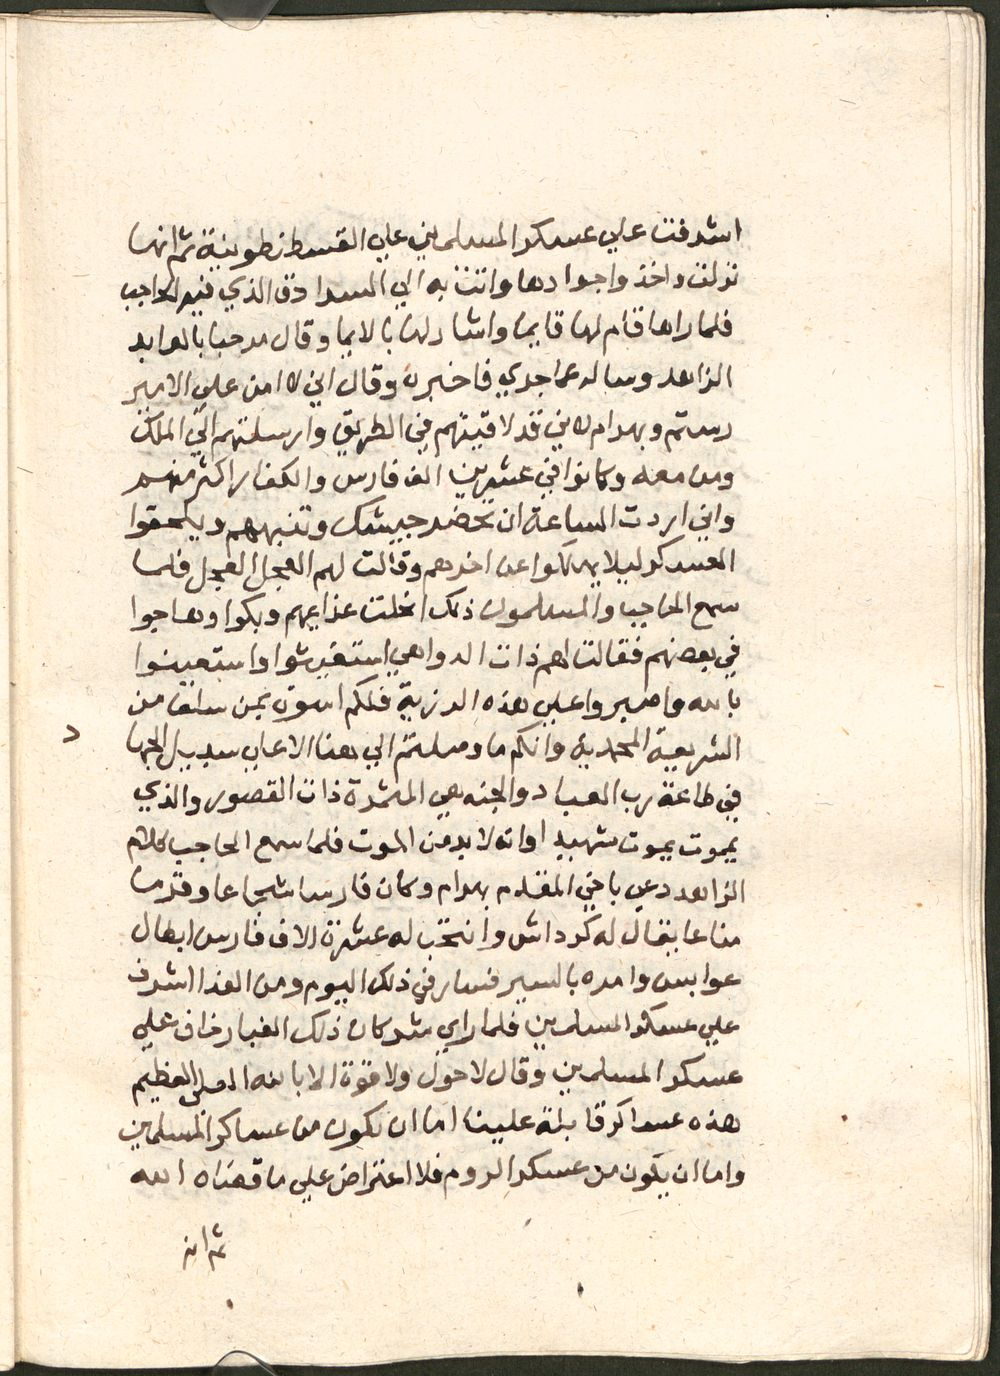 اشرفت علي عسكر المسلمين علي القسطنطونية ثم انها
نزلت واخذوا جوادها واتت به الي السرادق الذي فيه الحاجب
فلما راها قام لها قايما واشار لها بالايما وقال مرحبا بالعابد
الزاهد وساله عما جري فاخبره وقال اني لا امن علي الامير
رستم وبهرام لاني قد لاقيتهم في الطريق وارسلتهم الي الملك
ومن معه وكانوا في عشرين الف فارس والكفار اكثر منهم
واني اردت الساعة ان تحضر جيشك وتنبههم ويلحقوا
العسكر ليلا يهلكوا عن اخرهم وقالت لهم العجل العجل فلما
سمع الحاجب والمسلمون ذلك انحلت عزايمهم وبكوا وهاجوا
في بعضهم فقالت لهم ذات الدواهي استغيثوا واستعينوا
بالله واصبروا علي هذه الرزية فلكم اسوة بمن سلف من
الشريعة المحمدية وانكم ما وصلتم الي هنا الا علي سبيل الجها
د
في طاعة رب العباد والجنه هي المثمرة ذات القصور والذي
يموت يموت شهيدا وانه لا بد من الموت فلما سمع الحاجب كلام
الزاهد دعي باخي المقدم بهرام وكان فارسا شجاعا وقرما
مناعا يقال له كرداش وانتخب له عشرة الاف فارس ابطال
عوابس وامره بالسير فسار في ذلك اليوم ومن الغد اشرف
علي عسكر المسلمين فلما راي شركان ذلك الغبار خاف علي
عسكر المسلمين وقال لا حول ولا قوة الا بالله العلي العظيم
هذه عساكر قابلة علينا اما ان تكون من عساكر المسلمين
واما ان يكون من عسكر الروم فلا اعتراض علي ما قضاه الله
ثم ان